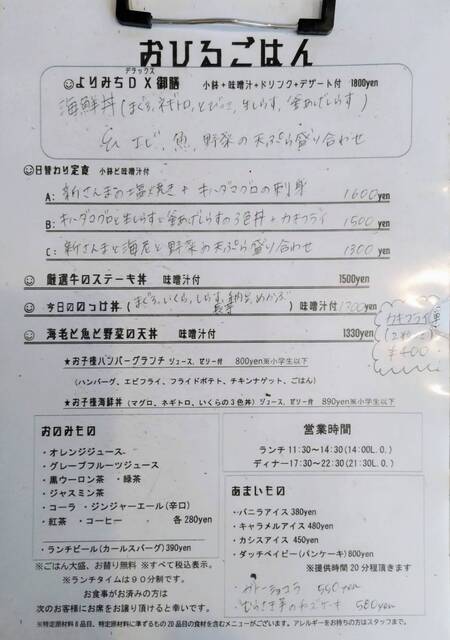 おひるごはん
デラックス
☺よりみちDX御膳 小鉢+味噌汁+ドリンク+デザート付 1800yen
海鮮丼(まぐろ、ネギトロ、とびこ、生しらす、釜あげしらす)
エビ、魚、野菜の天ぷら盛り合わせ
☺日替わり定食 小鉢と味噌汁付
A: 新さんまの塩焼き + キハダマグロの刺身 1600yen
B: キハダマグロと生しらすと釜あげしらすの3色丼 + カキフライ 1500yen
C: 新さんまと海老と野菜の天ぷら盛り合わせ 1300yen
☺厳選牛のステーキ丼 味噌汁付 1500yen
☺今日ののっけ丼(まぐろ、いくら、しらす、納豆、めかぶ、長芋)味噌汁付 1300yen
☺海老と魚と野菜の天丼 味噌汁付 1330yen
カキフライ単
¥400
★お子様ハンバーグランチ ジュース、ゼリー付 800yen※小学生以下
(ハンバーグ、エビフライ、フライドポテト、チキンナゲット、ごはん)
★お子様海鮮丼(マグロ、ネギトロ、いくらの3色丼)ジュース、ゼリー付 890yen※小学生以下
おのみもの
・オレンジジュース
・グレープフルーツジュース
・黒ウーロン茶 ・緑茶
・ジャスミン茶
・コーラ ・ジンジャーエール(辛口)
・紅茶 ・コーヒー 各280yen
ランチビール(カールスバーグ)390yen
営業時間
ランチ 11:30~14:30(14:00L.O.)
ディナー17:30~22:30(21:30L.O.)
あまいもの
・バニラアイス 380yen
・キャラメルアイス 480yen
・カシスアイス 450yen
・ダッチベイビー(パンケーキ)800yen
※提供時間20分程頂きます
・ガトーショコラ 550yen
・むらさき芋のチーズケーキ 580yen
※ごはん大盛、お替り無料 ※すべて税込表示。
※ランチタイムは90分制です。
お食事がお済みの方は
次のお客様にお席をお譲り頂けると幸いです。
※特定原材料8品目、特定原材料に準ずるもの20品目の食材を含むメニューがございます。アレルギーをお持ちの方はスタッフまで。